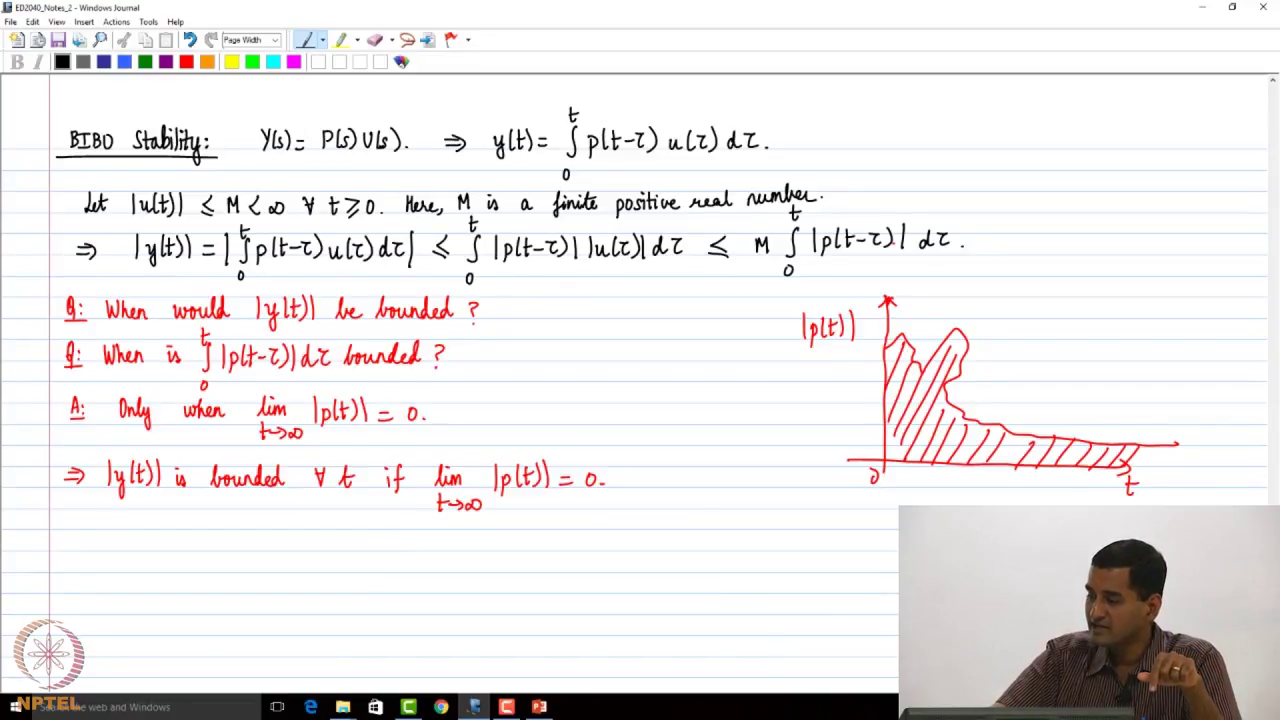 ED2040_Notes_2 - Windows Journal
File Edit View Insert Actions Tools Help
Page Width
B I
BIBO Stability: Y(s) = P(s) U(s). ⇒ y(t) = ∫₀ᵗ p(t-τ) u(τ) dτ.
Let |u(t)| ≤ M < ∞ ∀ t ≥ 0. Here, M is a finite positive real number.
⇒ |y(t)| = |∫₀ᵗ p(t-τ) u(τ) dτ| ≤ ∫₀ᵗ |p(t-τ)| |u(τ)| dτ ≤ M ∫₀ᵗ |p(t-τ)| dτ.
Q: When would |y(t)| be bounded?
Q: When is ∫₀ᵗ |p(t-τ)| dτ bounded?
A: Only when lim t→∞ |p(t)| = 0.
⇒ |y(t)| is bounded ∀ t if lim t→∞ |p(t)| = 0.
|p(t)|
0
t
NPTEL
Search the web and Windows